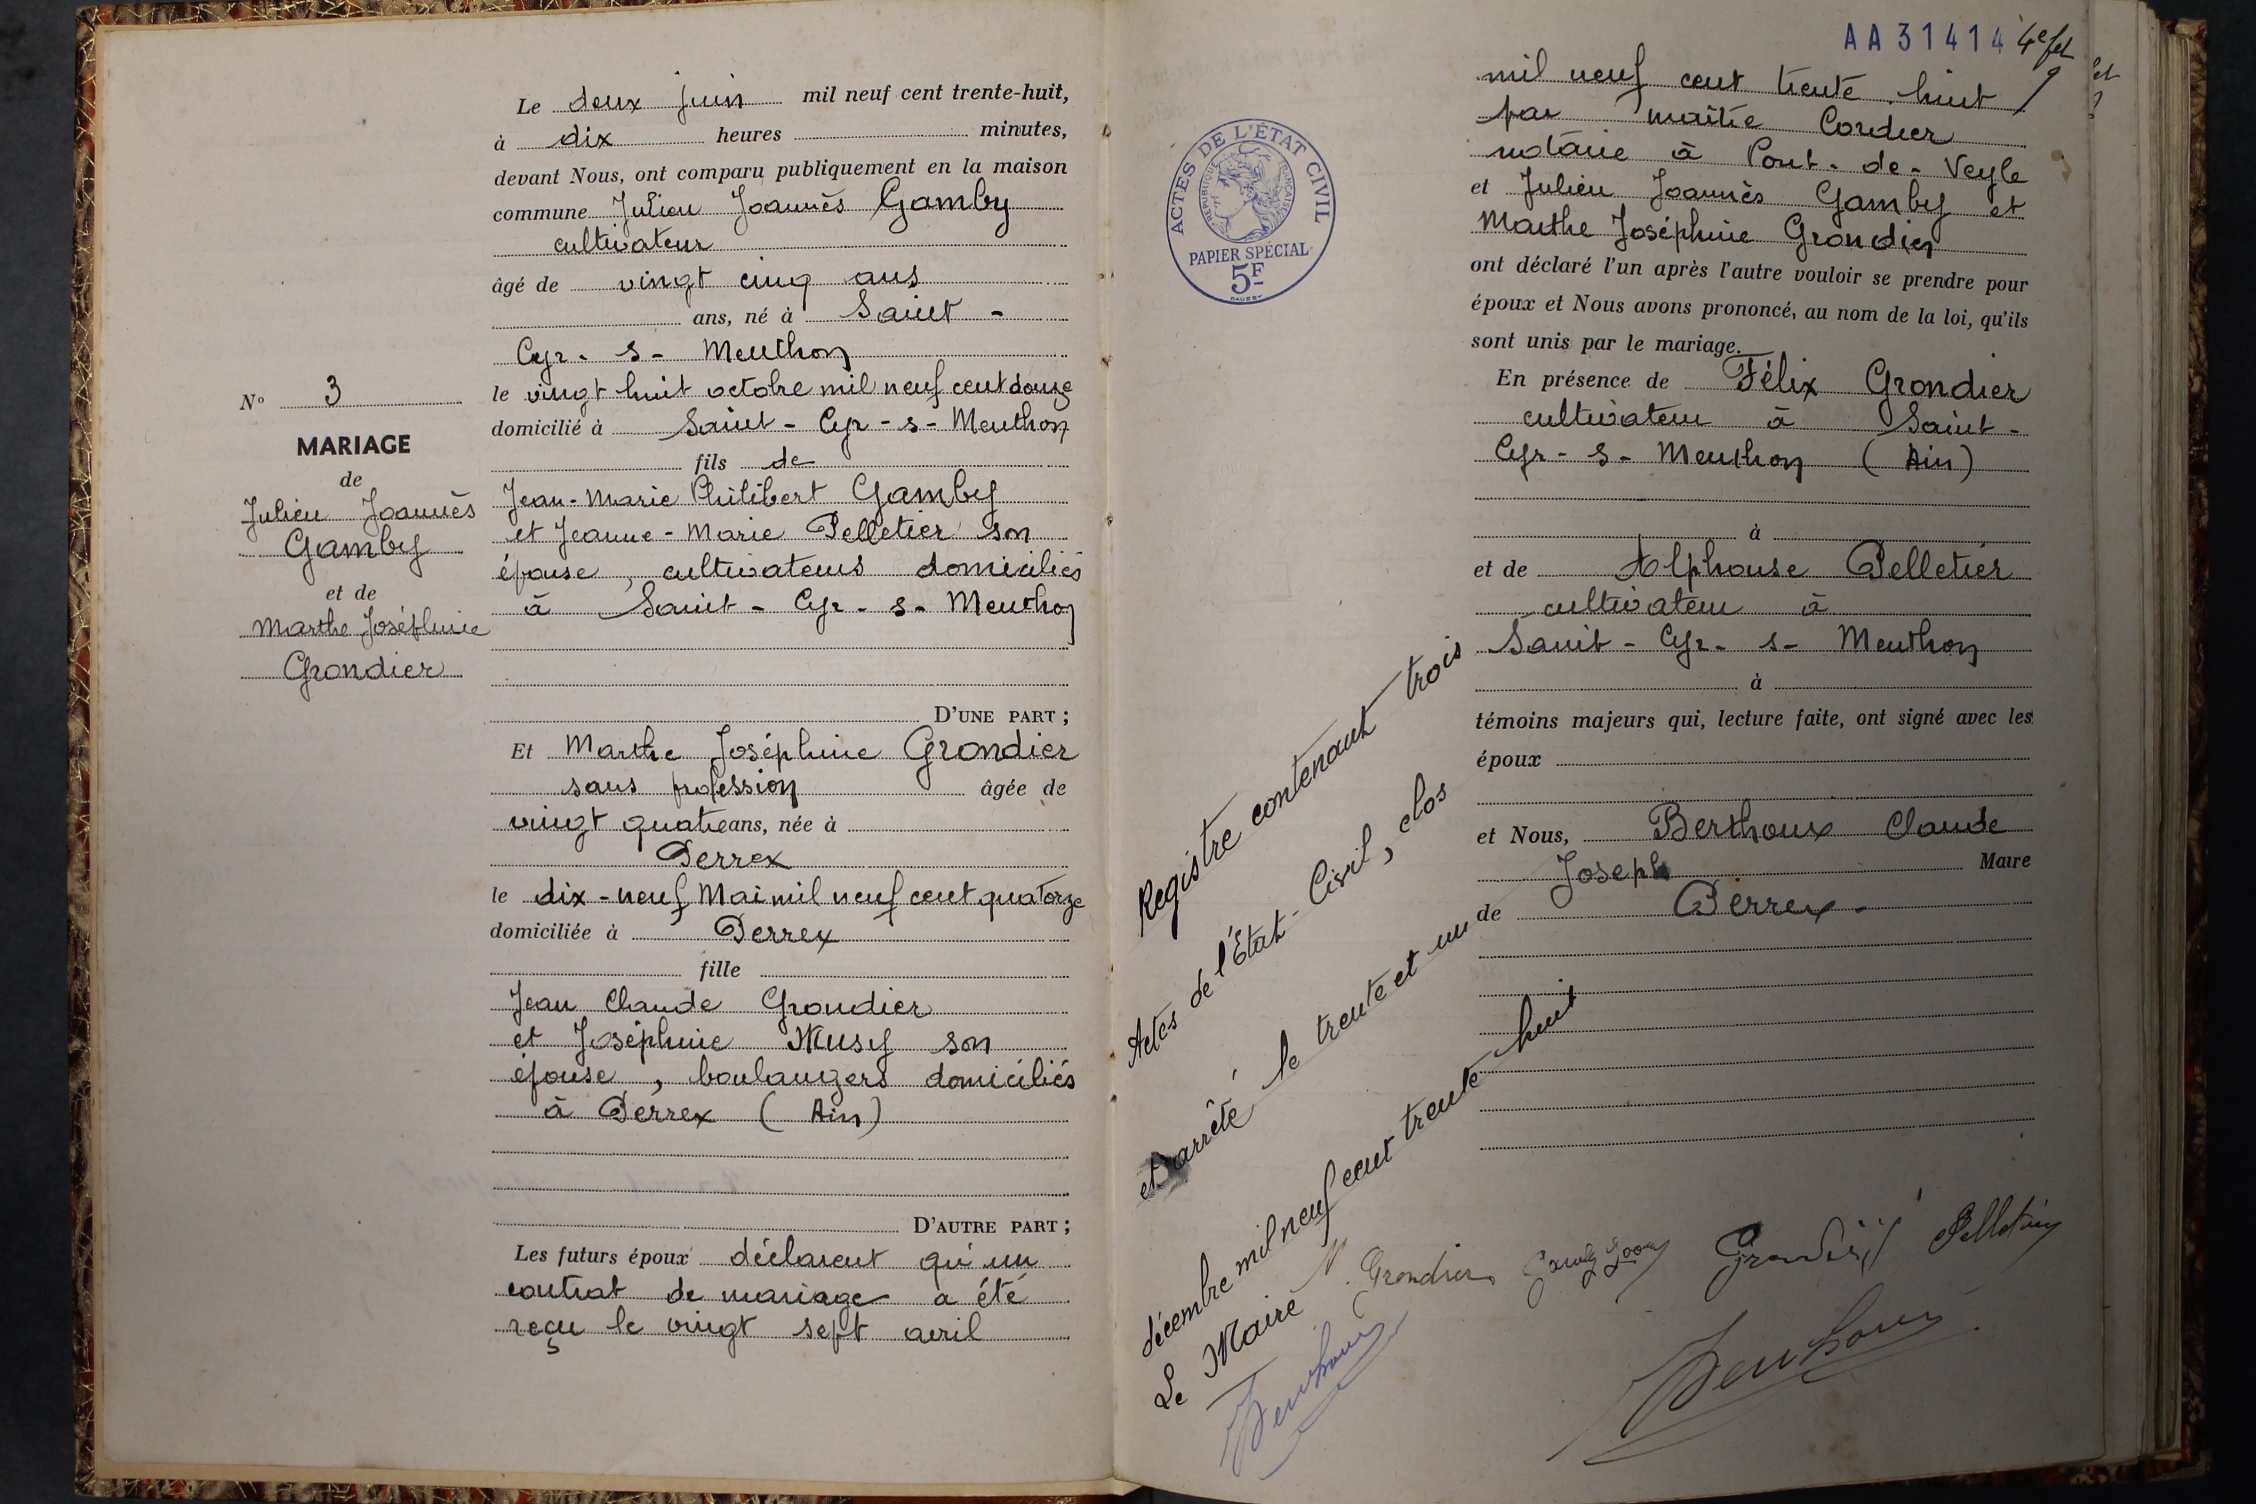 N° 3
MARIAGE
de
Julien Joannès
Gamby
et de
Marthe Joséphine
Grondier
Le deux juin mil neuf cent trente-huit,
à dix heures minutes,
devant Nous, ont comparu publiquement en la maison
commune Julien Joannès Gamby
cultivateur
âgé de vingt cinq ans
ans, né à Saint -
Cyr - s - Menthon
le vingt huit octobre mil neuf cent douze
domicilié à Saint - Cyr - s - Menthon
fils de
Jean-Marie Philibert Gamby
et Jeanne-Marie Pelletier son
épouse, cultivateurs domiciliés
à Saint - Cyr - s - Menthon
D'UNE PART ;
Et Marthe Joséphine Grondier
sans profession âgée de
vingt quatre ans, née à
Perrex
le dix-neuf Mai mil neuf cent quatorze
domiciliée à Perrex
fille
Jean Claude Grondier
et Joséphine Musy son
épouse, boulangers domiciliés
à Perrex (Ain)
D'AUTRE PART ;
Les futurs époux déclarent qu'un
contrat de mariage a été
reçu le vingt sept avril
AA31414 4e fet
mil neuf cent trente huit
par maître Cordier
notaire à Pont-de-Veyle
et Julien Joannès Gamby et
Marthe Joséphine Grondier
ont déclaré l'un après l'autre vouloir se prendre pour
époux et Nous avons prononcé, au nom de la loi, qu'ils
sont unis par le mariage.
En présence de Félix Grondier
cultivateur à Saint -
Cyr - s - Menthon (Ain)
à
et de Alphonse Pelletier
cultivateur à
Saint - Cyr - s - Menthon
à
témoins majeurs qui, lecture faite, ont signé avec les
époux
et Nous, Berthoux Claude
Joseph Maire
de Perrex -
ACTES DE L'ÉTAT CIVIL
RÉPUBLIQUE FRANÇAISE
PAPIER SPÉCIAL
5F
Registre contenant trois
Actes de l'Etat-Civil, clos
et arrêté le trente et un
décembre mil neuf cent trente huit
Le Maire
Berthoux
M. Grondier Gamby Joan Grondier Pelletier
Berthoux